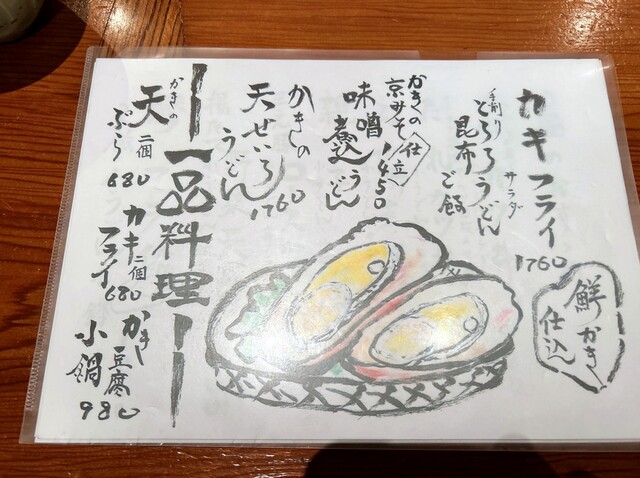 カキフライ
サラダ
手削り
とろろうどん
昆布ご飯
1760
鮮かき
仕込
かきの
京みそ仕立
味噌煮込うどん
1450
かきの
天せいろ
うどん
1760
一品料理
かきの
天ぷら
二個
680
カキ
フライ
二個
680
かき
豆腐
小鍋
980